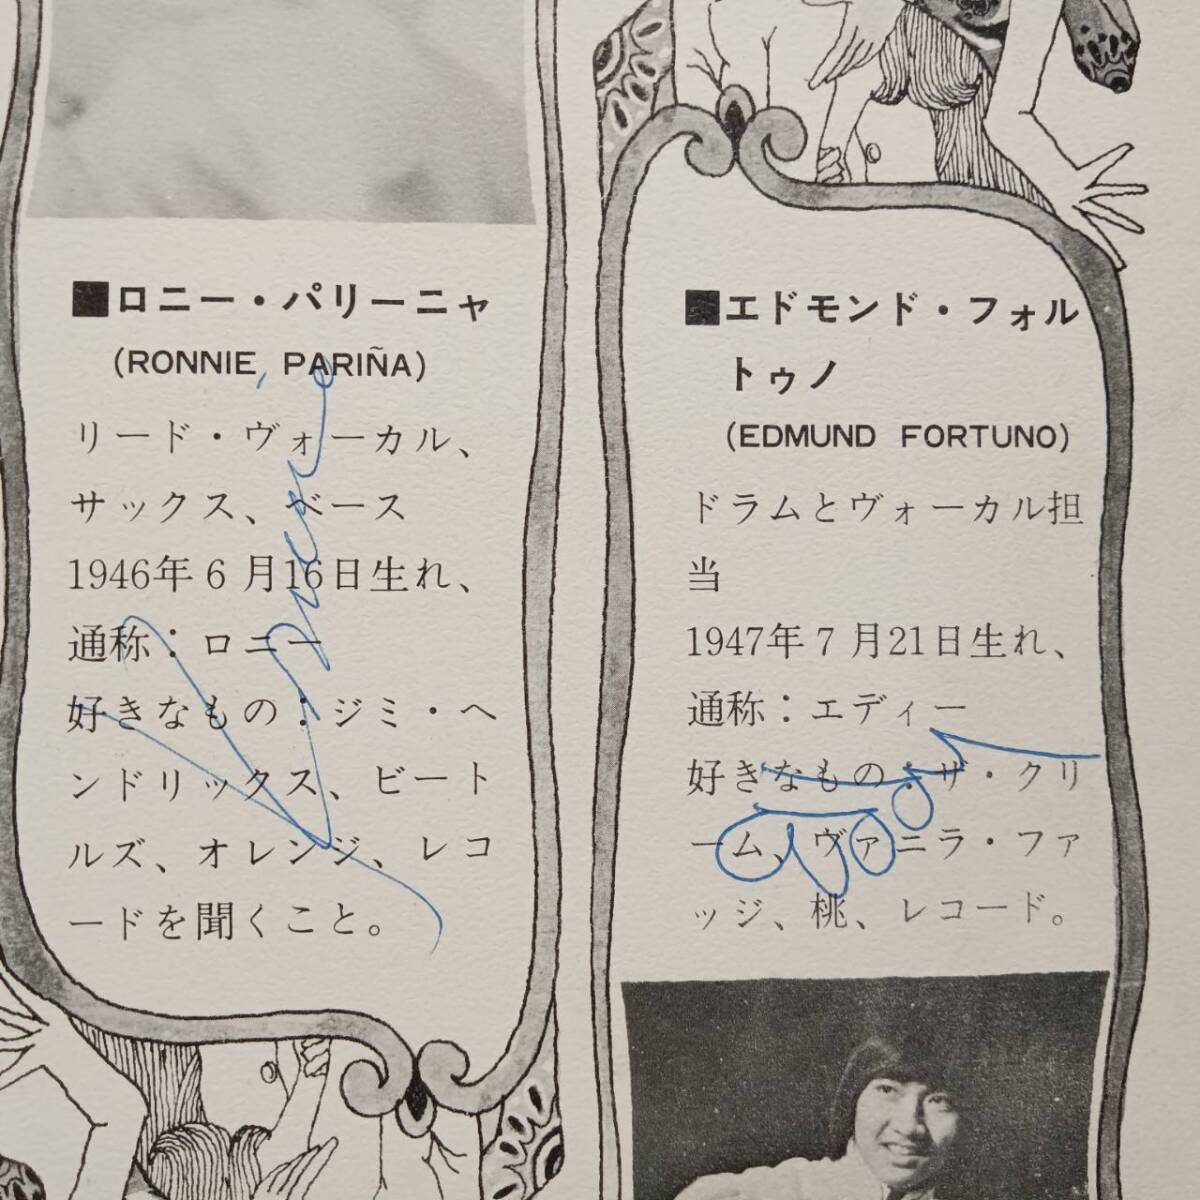 ■ロニー・パリーニャ
(RONNIE, PARIÑA)
リード・ヴォーカル、
サックス、ベース
1946年6月16日生れ、
通称：ロニー
好きなもの：ジミ・ヘ
ンドリックス、ビート
ルズ、オレンジ、レコ
ードを聞くこと。
■エドモンド・フォル
トゥノ
(EDMUND FORTUNO)
ドラムとヴォーカル担
当
1947年7月21日生れ、
通称：エディー
好きなもの：ザ・クリ
ーム、ヴァニラ・ファ
ッジ、桃、レコード。